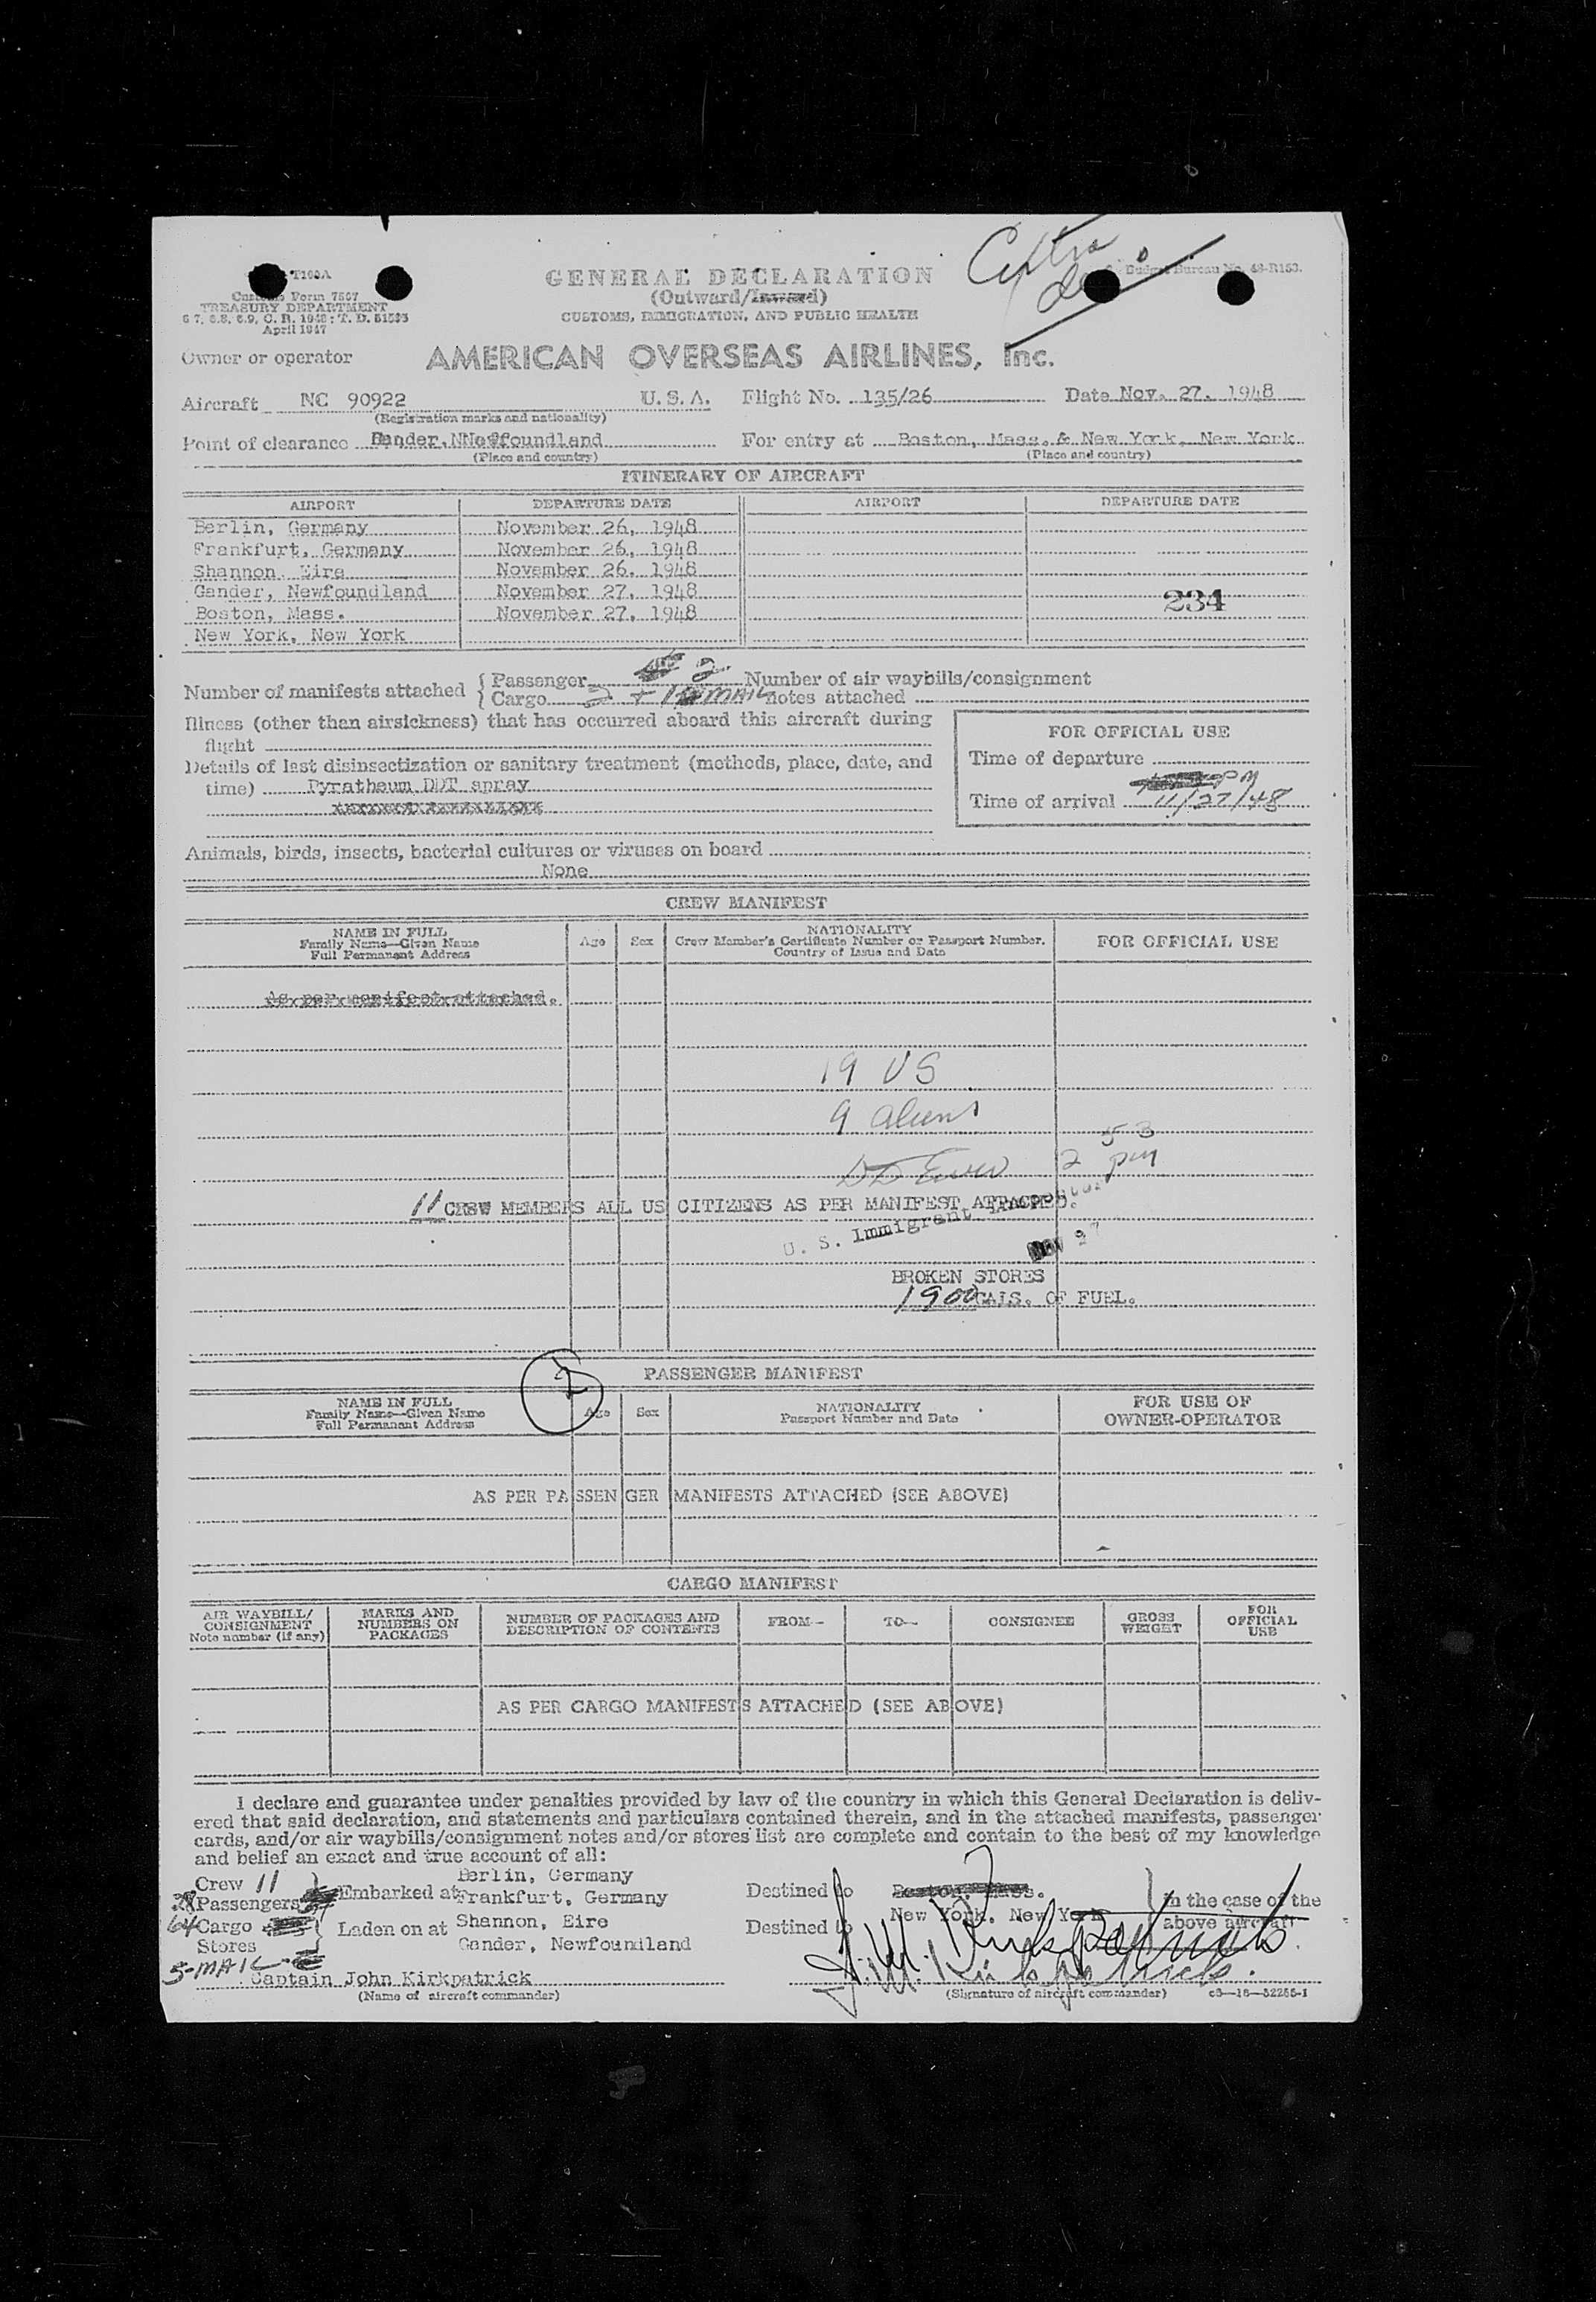 T100A
Customs Form 7507
TREASURY DEPARTMENT
6 7, 6.8, 6.9, C. R. 1948; T. D. 51585
April 1947
GENERAL DECLARATION
(Outward/Inward)
CUSTOMS, IMMIGRATION, AND PUBLIC HEALTH
Extra
Budget Bureau No. 48-R153.
Owner or operator AMERICAN OVERSEAS AIRLINES, Inc.
Aircraft NC 90922 U. S. A. Flight No. 135/26 Date Nov. 27. 1948
(Registration marks and nationality)
Point of clearance Gander, Newfoundland For entry at Boston, Mass. & New York, New York
(Place and country) (Place and country)
ITINERARY OF AIRCRAFT
AIRPORT DEPARTURE DATE AIRPORT DEPARTURE DATE
Berlin, Germany November 26, 1948
Frankfurt, Germany November 26, 1948
Shannon, Eire November 26, 1948
Gander, Newfoundland November 27, 1948
234
Boston, Mass. November 27, 1948
New York, New York
Number of manifests attached { Passenger 2 Number of air waybills/consignment
{ Cargo 2 + 1 MAIL notes attached
Illness (other than airsickness) that has occurred aboard this aircraft during
flight
Details of last disinsectization or sanitary treatment (methods, place, date, and
time) Pyratheum DDT spray
FOR OFFICIAL USE
Time of departure
PM
Time of arrival 11/27/48
Animals, birds, insects, bacterial cultures or viruses on board
None
CREW MANIFEST
NAME IN FULL
Family Name—Given Name
Full Permanent Address
Age Sex
NATIONALITY
Crew Member's Certificate Number or Passport Number.
Country of Issue and Date
FOR OFFICIAL USE
As per manifest attached.
19 US
9 aliens
2 53 pm
11 CREW MEMBERS ALL US CITIZENS AS PER MANIFEST ATTACHED.
U. S. Immigrant Inspector
NOV 27
BROKEN STORES
1900 GALS. OF FUEL.
PASSENGER MANIFEST
NAME IN FULL
Family Name—Given Name
Full Permanent Address
Age Sex
NATIONALITY
Passport Number and Date
FOR USE OF
OWNER-OPERATOR
AS PER PASSENGER MANIFESTS ATTACHED (SEE ABOVE)
CARGO MANIFEST
AIR WAYBILL/
CONSIGNMENT
Note number (if any)
MARKS AND
NUMBERS ON
PACKAGES
NUMBER OF PACKAGES AND
DESCRIPTION OF CONTENTS
FROM— TO— CONSIGNEE
GROSS
WEIGHT
FOR
OFFICIAL
USE
AS PER CARGO MANIFESTS ATTACHED (SEE ABOVE)
I declare and guarantee under penalties provided by law of the country in which this General Declaration is deliv-
ered that said declaration, and statements and particulars contained therein, and in the attached manifests, passenger
cards, and/or air waybills/consignment notes and/or stores list are complete and contain to the best of my knowledge
and belief an exact and true account of all:
Crew 11
28 Passengers
64 Cargo
Stores
5-MAIL
Embarked at
Laden on at
Berlin, Germany
Frankfurt, Germany
Shannon, Eire
Gander, Newfoundland
Destined to Boston, Mass.
New York, New York
Destined to
in the case of the
above aircraft
J. M. Kirkpatrick
Captain John Kirkpatrick J. M. Kirkpatrick.
(Name of aircraft commander) (Signature of aircraft commander) c6—16—52255-1